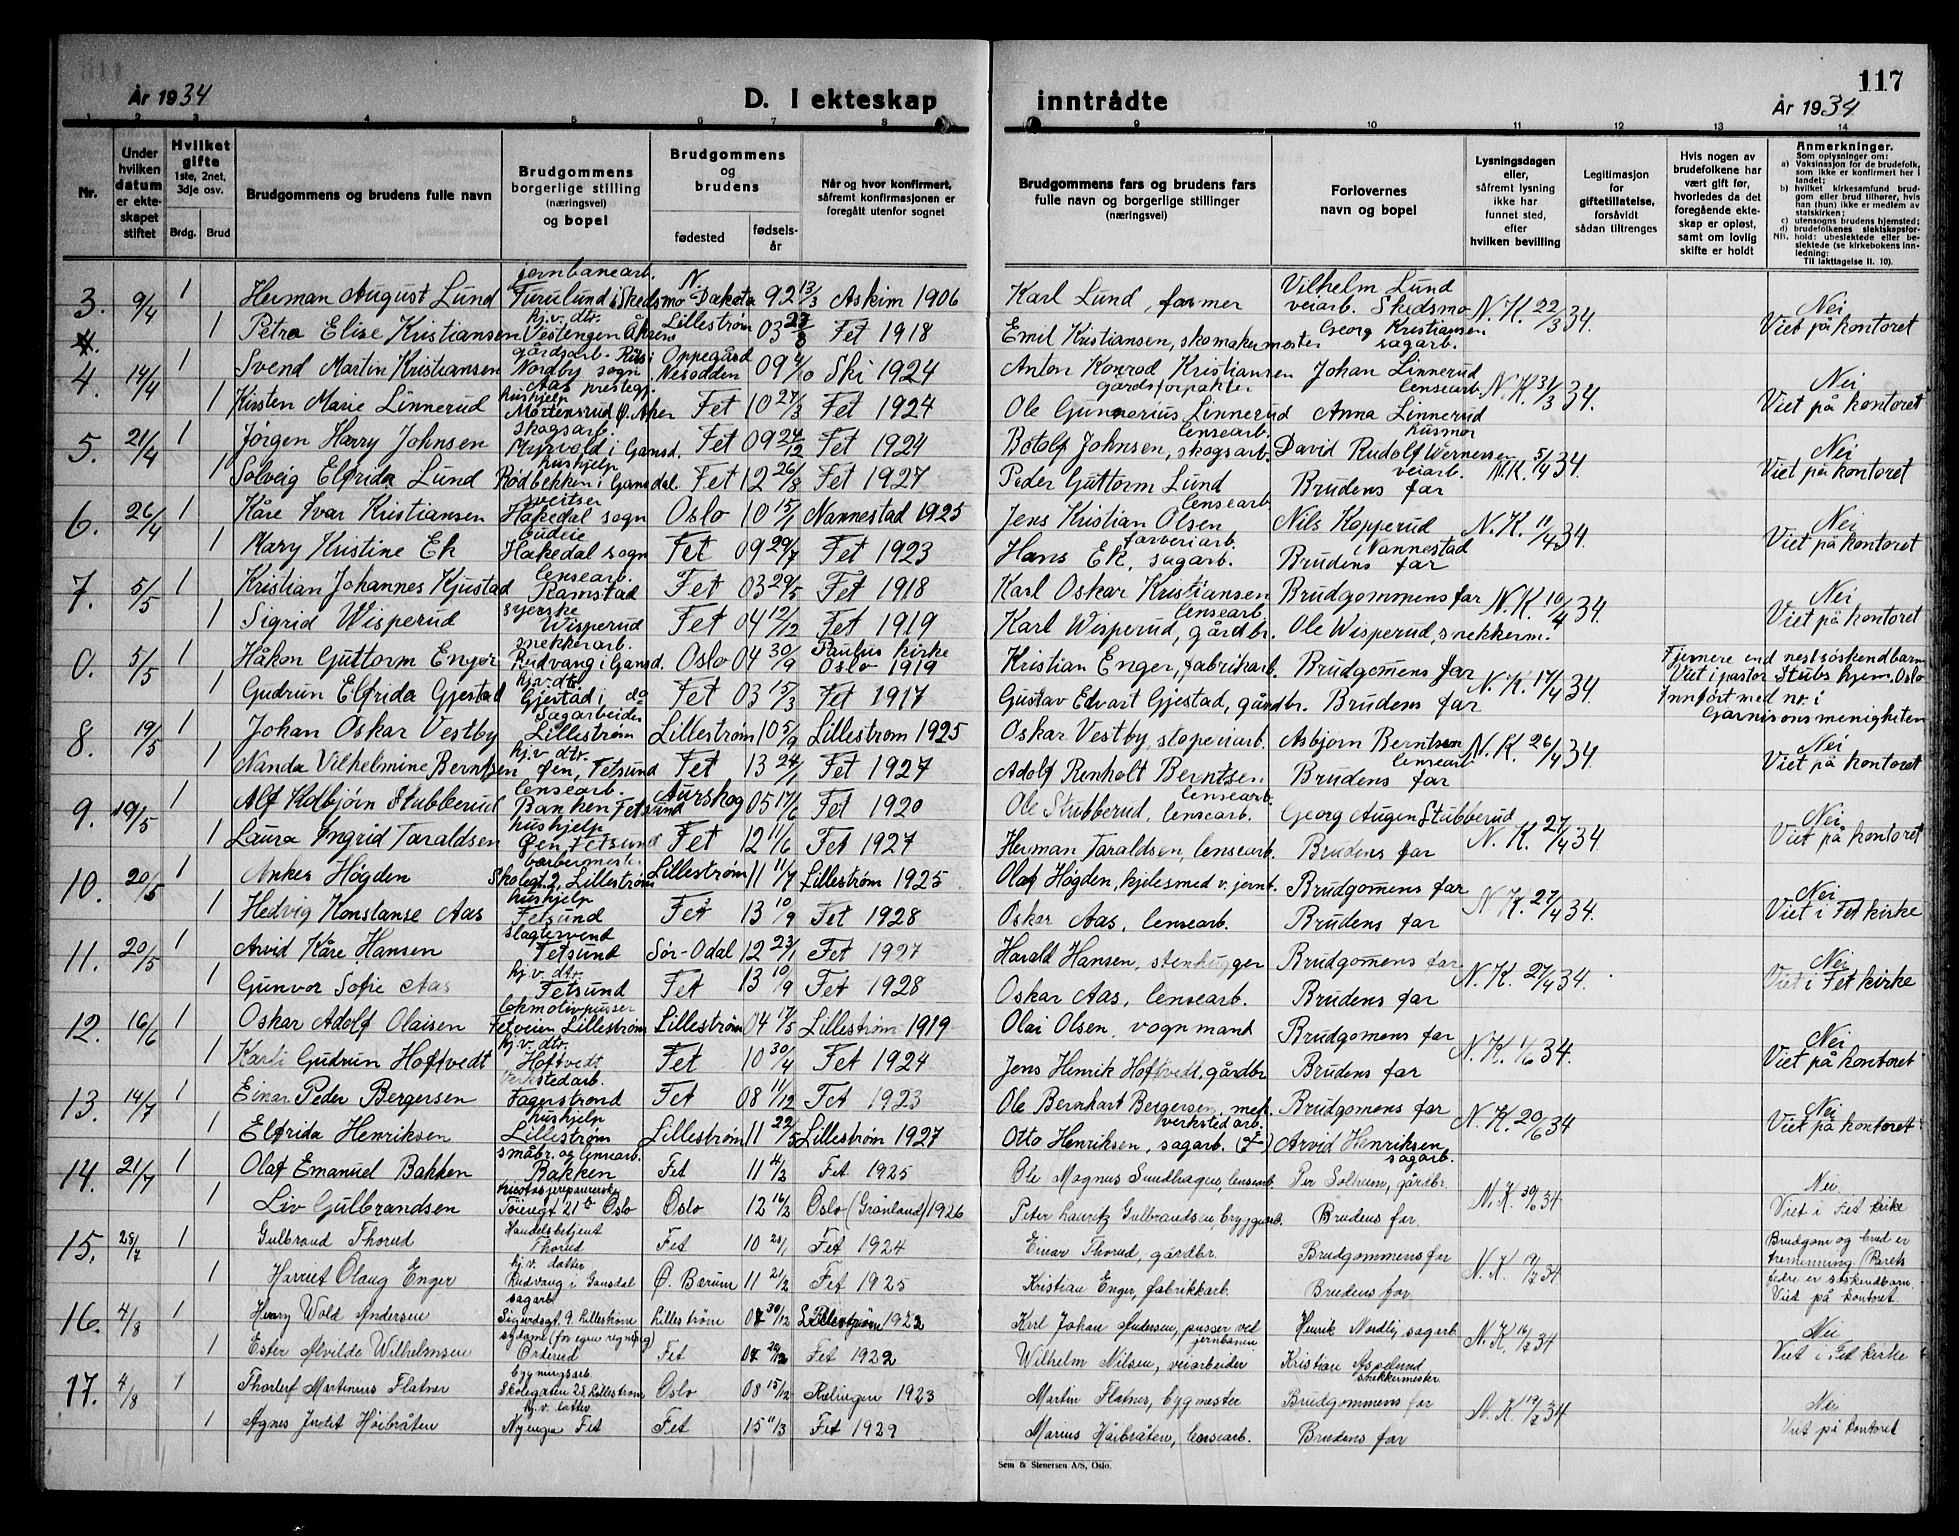 År 1934
D. I ekteskap
inntrådte
117
År 1934
1 2 3 4 5 6 7 8 9 10 11 12 13 14
Nr.
Under hvilken datum er ekteskapet stiftet
Hvilket gifte 1ste, 2net, 3dje osv.
Brdg. Brud
Brudgommens og brudens fulle navn
Brudgommens borgerlige stilling (næringsvei) og bopel
Brudgommens og brudens
fødested
fødselsår
Når og hvor konfirmert, såfremt konfirmasjonen er foregått utenfor sognet
Brudgommens fars og brudens fars fulle navn og borgerlige stillinger (næringsvei)
Forlovernes navn og bopel
Lysningsdagen eller, såfremt lysning ikke har funnet sted, efter hvilken bevilling
Legitimasjon for giftetillatelse, forsåvidt sådan tiltrenges
Hvis nogen av brudefolkene har vært gift før, hvorledes da det foregående ekteskap er opløst, samt om lovlig skifte er holdt
Anmerkninger.
Som oplysninger om:
a) Vaksinasjon for de brudefolk, som ikke er konfirmert her i landet;
b) hvilket kirkesamfund brudgom eller brud tilhører, hvis han (hun) ikke er medlem av statskirken;
c) utensogns brudens hjemsted;
d) brudefolkenes slektskapsforhold: ubeslektede eller beslektede (se kirkebokens innledning:
NB. Til iakttagelse II. 10).
3. 9/4 1 Herman August Lund jernbanearb. Furulund i Skedsmo N. Dakota 92 13/3 Askim 1906 Karl Lund, farmer Vilhelm Lund veiarb. Skedsmo N.K. 22/3 34. Nei
1 Petra Elise Kristiansen hj.v. dtr. Vestengen Åkrene Lillestrøm 03 27/8 Fet 1918 Emil Kristiansen, skomakermester Georg Kristiansen sagarb. Viet på kontoret
4. 14/4 1 Svend Martin Kristiansen gårdsarb. Nordby sogn Aas prestegj. Oppegård Nesodden 09 4/10 Ski 1924 Anton Konrad Kristiansen gårdsforpakter Johan Linnerud lensearb. N.K. 31/3 34. Nei
1 Kirsten Marie Linnerud hushjelp Mortensrud Ø. Aker Fet 10 27/3 Fet 1924 Ole Gunnerius Linnerud lensearb. Anna Linnerud husmor Viet på kontoret
5. 21/4 1 Jørgen Harry Johnsen skogsarb. Myrvold i Gansd. Fet 09 24/12 Fet 1924 Botolf Johnsen, skogsarb. David Rudolf Wernersen veiarb. N.K. 5/4 34. Nei
1 Solveig Elfrida Lund hushjelp Rødbekken i Gansdal. Fet 12 26/8 Fet 1927 Peder Guttorm Lund lensearb. Brudens far Viet på kontoret
6. 26/4 1 Kåre Ivar Kristiansen sveitser Hakedal sogn Oslo 10 15/1 Nannestad 1925 Jens Kristian Olsen farveriarb. Nils Kopperud i Nannestad N.K. 11/4 34. Nei
1 Mary Kristine Ek budeie Hakedal sogn Fet 09 29/7 Fet 1923 Hans Ek, sagarb. Brudens far Viet på kontoret
7. 5/5 1 Kristian Johannes Kjustad lensearb. Ramstad Fet 03 29/5 Fet 1918 Karl Oskar Kristiansen lensearb. Brudgommens far N.K. 10/4 34. Nei
1 Sigrid Wisperud syerske Wisperud Fet 04 12/12 Fet 1919 Karl Wisperud, gårdbr. Ole Wisperud, snekkerm. Viet på kontoret
0. 5/5 1 Håkon Guttorm Enger snekkerarb. Rudvang i Gansd. Oslo 04 30/9 Paulus kirke Oslo 1919 Kristian Enger, fabrikarb. Brudgomens far N.K. 17/4 34 Fjernere end nestsøskendbarn Viet i pastor Stubs hjem, Oslo
1 Gudrun Elfrida Gjestad hj.v. dtr. Gjestad i do Fet 03 15/3 Fet 1917 Gustav Edvart Gjestad, gårdbr. Brudens far Innført med nr. i Garnisonsmenigheten
8. 19/5 1 Johan Oskar Vestby Sagarbeider Lillestrøm Lillestrøm 10 5/9 Lillestrøm 1925 Oskar Vestby, støperiarb. Asbjørn Berntsen lensearb. N.K. 26/4 34 Nei
1 Nanda Vilhelmine Berntsen hj.v. dtr. Øen, Fetsund Fet 13 24/1 Fet 1927 Adolf Renholt Berntsen lensearb. Brudens far Viet på kontoret
9. 19/5 1 Alf Kolbjørn Stubberud lensearb. Banken Fetsund Aurskog 05 17/6 Fet 1920 Ole Stubberud, lensearb. Georg Augen Stubberud N.K. 27/4 34. Nei
1 Laura Ingrid Taraldsen hushjelp Øen, Fetsund Fet 12 11/6 Fet 1927 Herman Taraldsen, lensearb. Brudens far Viet på kontoret
10. 20/5 1 Anker Høgden barbermester Skolegt. 2, Lillestrøm Lillestrøm 11 11/7 Lillestrøm 1925 Olaf Høgden, kjelesmed v. jernb. Brudgomens far N.K. 27/4 34. Nei
1 Hedvig Konstanse Aas hushjelp Fetsund Fet 13 10/9 Fet 1928 Oskar Aas, lensearb. Brudens far Viet i Fet kirke
11. 20/5 1 Arvid Kåre Hansen slagtersvend Fetsund Sør-Odal 12 23/1 Fet 1927 Harald Hansen, stenhugger Brudgomens far N.K. 27/4 34. Nei
1 Gunvor Sofie Aas hj.v. dtr. Fetsund Fet 13 10/9 Fet 1928 Oskar Aas, lensearb. Brudens far Viet i Fet kirke
12. 16/6 1 Oskar Adolf Olaisen lokomotivpusser Fetveien Lillestrøm Lillestrøm 04 17/5 Lillestrøm 1919 Olai Olsen, vognmant Brudgomens far N.K. 1/6 34. Nei
1 Karli Gudrun Hoftvedt hj.v. dtr. Hoftvedt Fet 10 30/4 Fet 1924 Jens Henrik Hoftvedt, gårdbr. Brudens far Viet på kontoret
13. 14/7 1 Einar Peder Bergersen Verkstedarb. Fagerstrand Fet 08 11/12 Fet 1923 Ole Bernhart Bergersen, mek. verkstedarb. Brudgomens far N.K. 20/6 34 Nei
1 Elfrida Henriksen hushjelp Lillestrøm Lillestrøm 11 22/5 Lillestrøm 1927 Otto Henriksen, sagarb. Arvid Henriksen sagarb. Viet på kontoret
14. 21/7 1 Olaf Emanuel Bakken småbr. og lensearb. Bakken Fet 11 4/2 Fet 1925 Ole Magnus Sundhagen, lensearb. Per Solhaum, gårdbr. N.K. 30/6 34 Nei
1 Liv Gulbrandsen Tøiengt 21 Oslo Oslo 12 16/2 Oslo (Grønland) 1926 Peter Lauritz Gulbrandsen, bryggarb. Brudens far Viet i Fet kirke
15. 28/7 1 Gulbrand Thorud Handelsbetjent Thorud Fet 10 28/1 Fet 1924 Einar Thorud, gårdbr. Brudgommens far N.K. 19/7 34 Brudgom og brud er tremenning (Parets
1 Harriet Olaug Enger hj.v. datter Rudvang i Gansdal Ø. Berum 11 21/2 Fet 1925 Kristian Enger, fabrikkarb. Brudens far fedre er søskendbarn. Viet på kontoret
16. 4/8 1 Henry Wold Andersen sagarb. Sigurdsgt. 9, Lillestrøm Lillestrøm 07 30/12 Lillestrøm 1922 Karl Johan Andersen, pusser ved jernbanen Henrik Nordli, sagarb. N.K. 16/7 34 Nei
1 Ester Alvilde Wilhelmsen sydame (for egen regning) Ørderud Fet 07 Fet 1922 Wilhelm Nilsen, veiarbeider Kristian Aspelund snekkermester Viet i Fet kirke
17. 4/8 1 Thorleif Martinius Flatner bygningsarb. Skolegaten 28, Lillestrøm Oslo 08 15/12 Rælingen 1923 Martin Flatner, bygmester Brudgommens far N.K. 19/7 34 Nei
1 Agnes Judit Høibråten hj.v. datter Nyengen Fet Fet 15 11/3 Fet 1929 Marius Høibråten, lensearb. Brudens far Viet på kontoret
Sem & Stenersen A/S, Oslo.